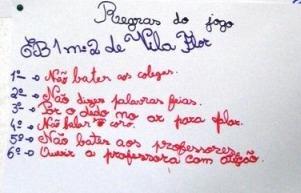 Regras do jogo
EB1 nº2 de Vila Flor
1º → Não bater aos colegas.
2º → Não dizer palavras feias.
3º → Por o dedo no ar para falar.
4º → Não falar coro.
5º → Não bater aos professores.
6º → Ouvir a professora com atenção.